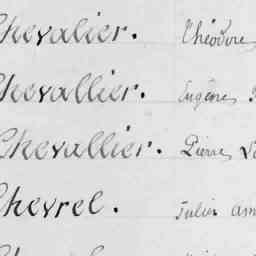 Chevalier. Théodore
Chevallier. Eugène
Chevallier. Pierre
Chevrel. Julien